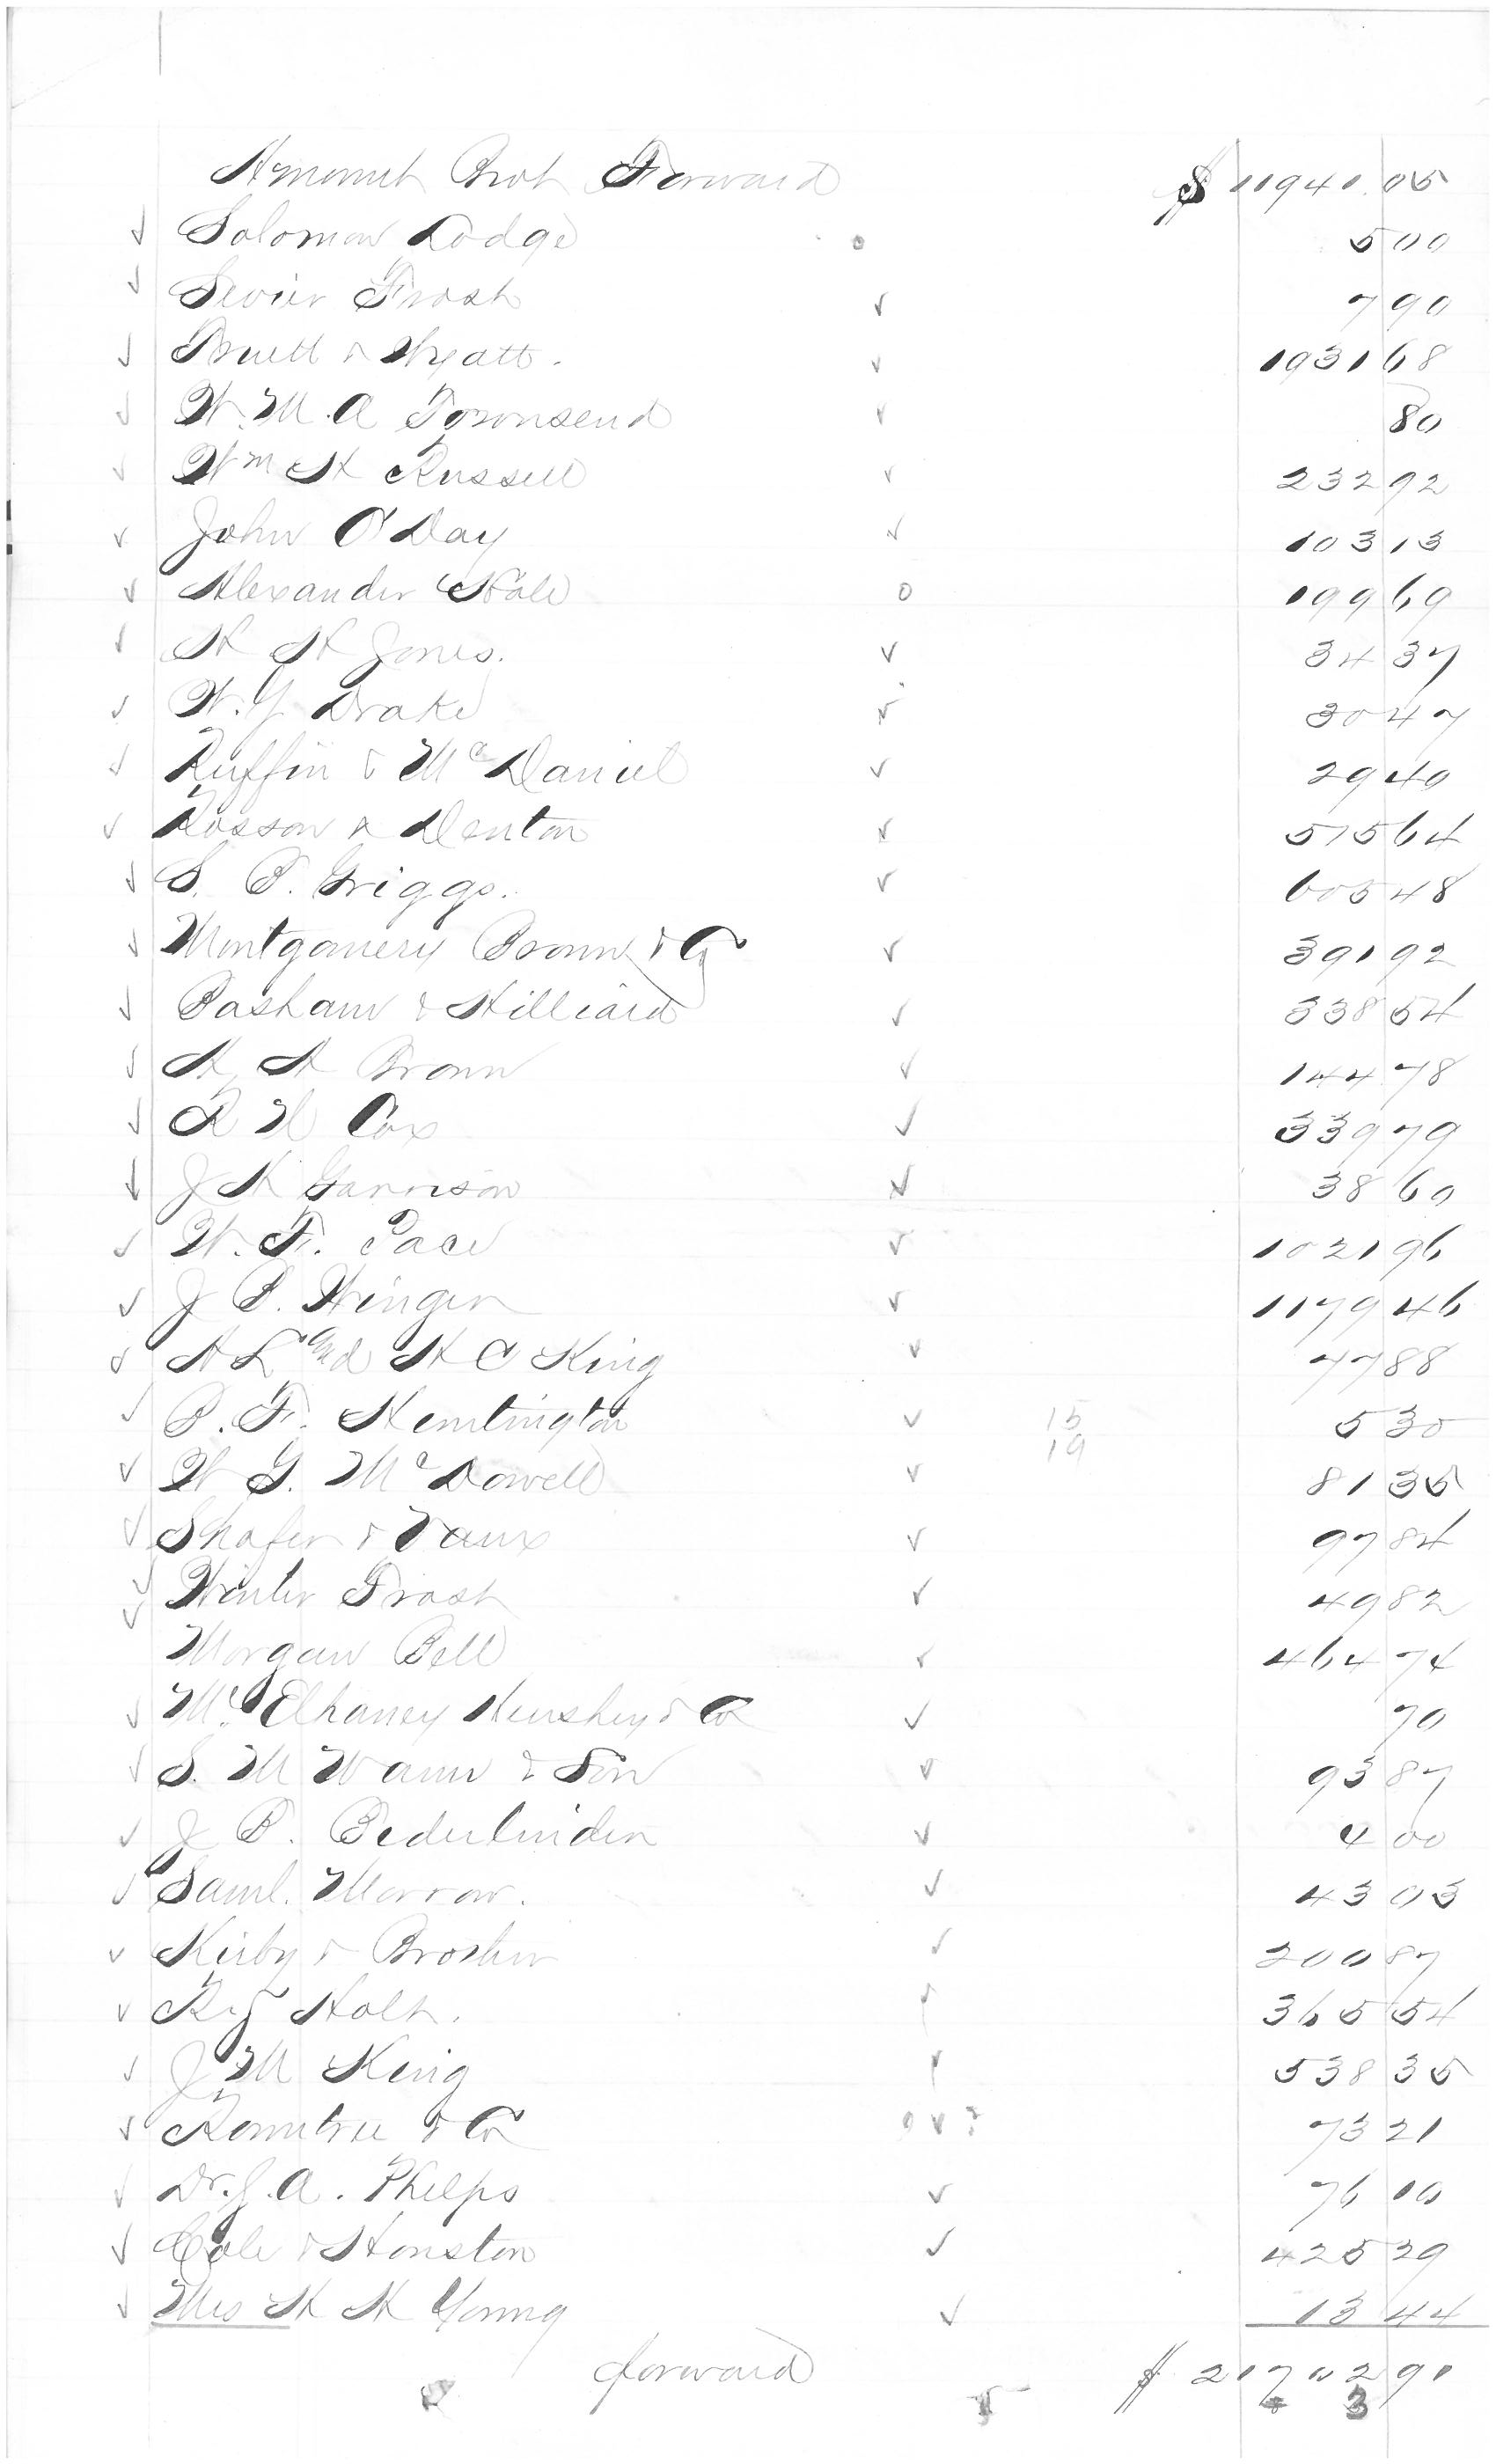 Amount Brot Forward $ 11941.05
√ Solomon Dodge o 5 00
√ Sevier Trash √ 7 90
√ Pruett & Wyatt. √ 1931 68
√ W. M. A Townsend √ 80
√ Wm H Russell √ 232 92
√ John O'Day √ 103 13
√ Alexander Hale o 199 69
√ H H Jones. √ 34 37
√ W. J Drake √ 30 47
√ Ruffin & McDaniel √ 29 40
√ Rosson & Denton √ 515 64
√ S. P. Griggs. √ 605 48
√ Montgomery Bronn & Co √ 391 92
√ Basham & Hilliard √ 338 54
√ H, H Bronn √ 144 78
√ R N Cox √ 339 79
√ J H Garrison √ 38 60
√ W. F. Pace √ 1021 96
√ J B. Winger √ 1179 46
√ A L and H C King √ 47 88
√ B. F. Huntington √ 15 5 30
19
√ W G. McDowell √ 81 35
√ Shafer & Vaux √ 97 84
√ Winter Trash √ 49 82
√ Morgan Bell √ 464 74
√ McElhaney Kershey & Co √ 70
√ S. M Wann & Son √ 93 87
√ J B. Bederlinden √ 4 00
√ Saml. Morrow. √ 43 03
√ Kirby & Brother √ 200 87
√ Ry Holt. √ 365 54
√ J M King √ 538 35
√ Rountree & Co o √ ? 73 21
√ Dr. J. A. Phelps √ 76 10
√ Cole & Houston √ 425 29
√ Mrs H H Young √ 13 44
forward $ 21702 91
3